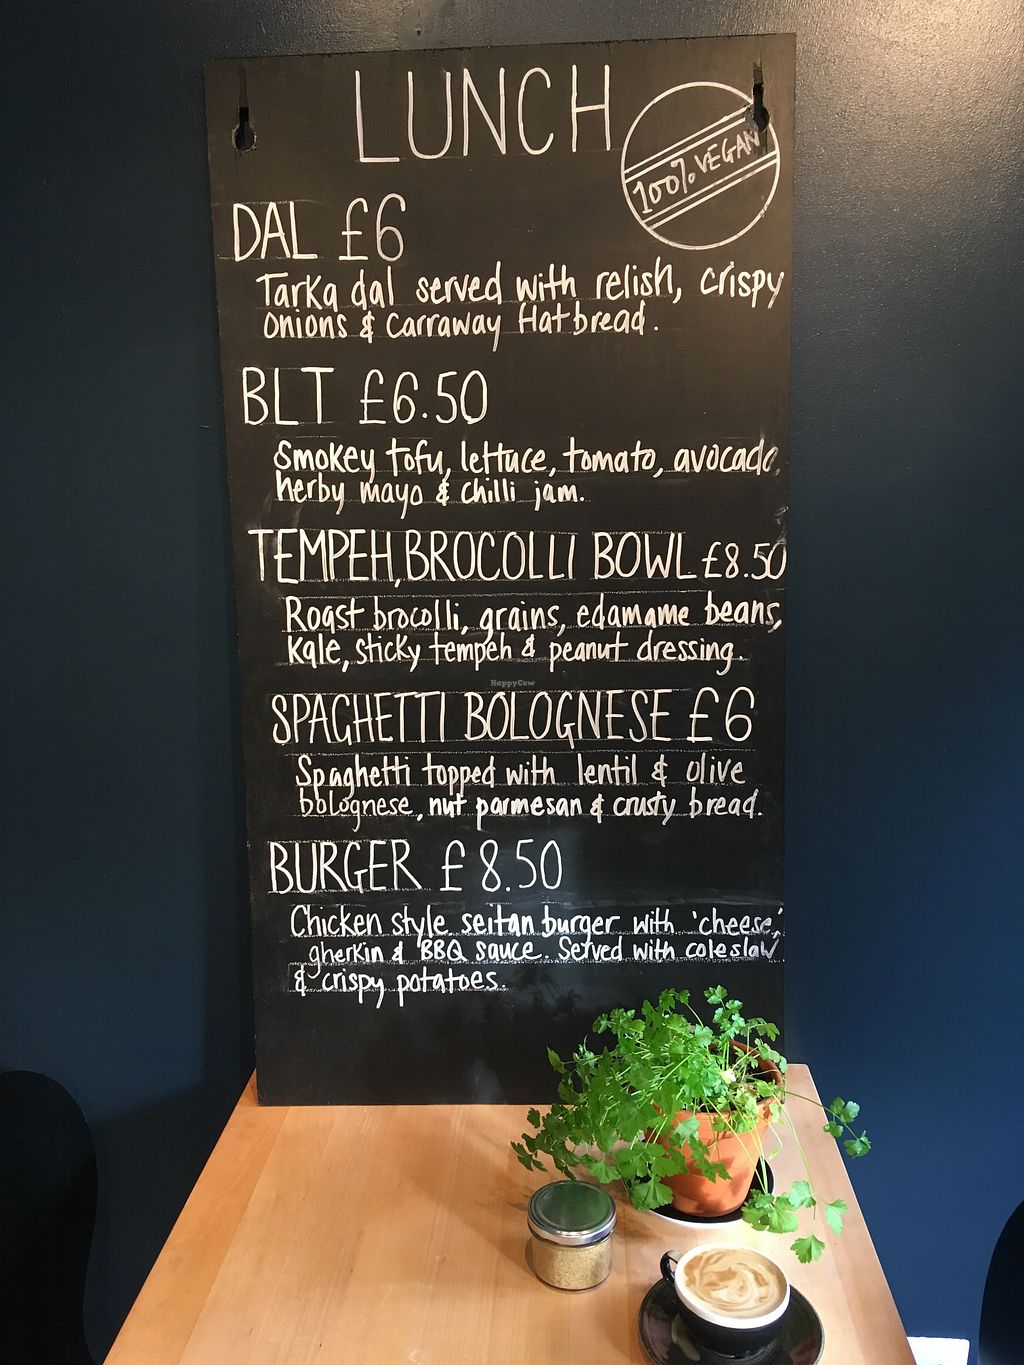 LUNCH
100% VEGAN
DAL £6
Tarka dal served with relish, crispy
onions & carraway flatbread.
BLT £6.50
Smokey tofu, lettuce, tomato, avocado,
herby mayo & chilli jam.
TEMPEH, BROCOLLI BOWL £8.50
Roast brocolli, grains, edamame beans,
kale, sticky tempeh & peanut dressing.
HappyCow
SPAGHETTI BOLOGNESE £6
Spaghetti topped with lentil & olive
bolognese, nut parmesan & crusty bread.
BURGER £8.50
Chicken style seitan burger with 'cheese,'
gherkin & BBQ sauce. Served with coleslaw
& crispy potatoes.